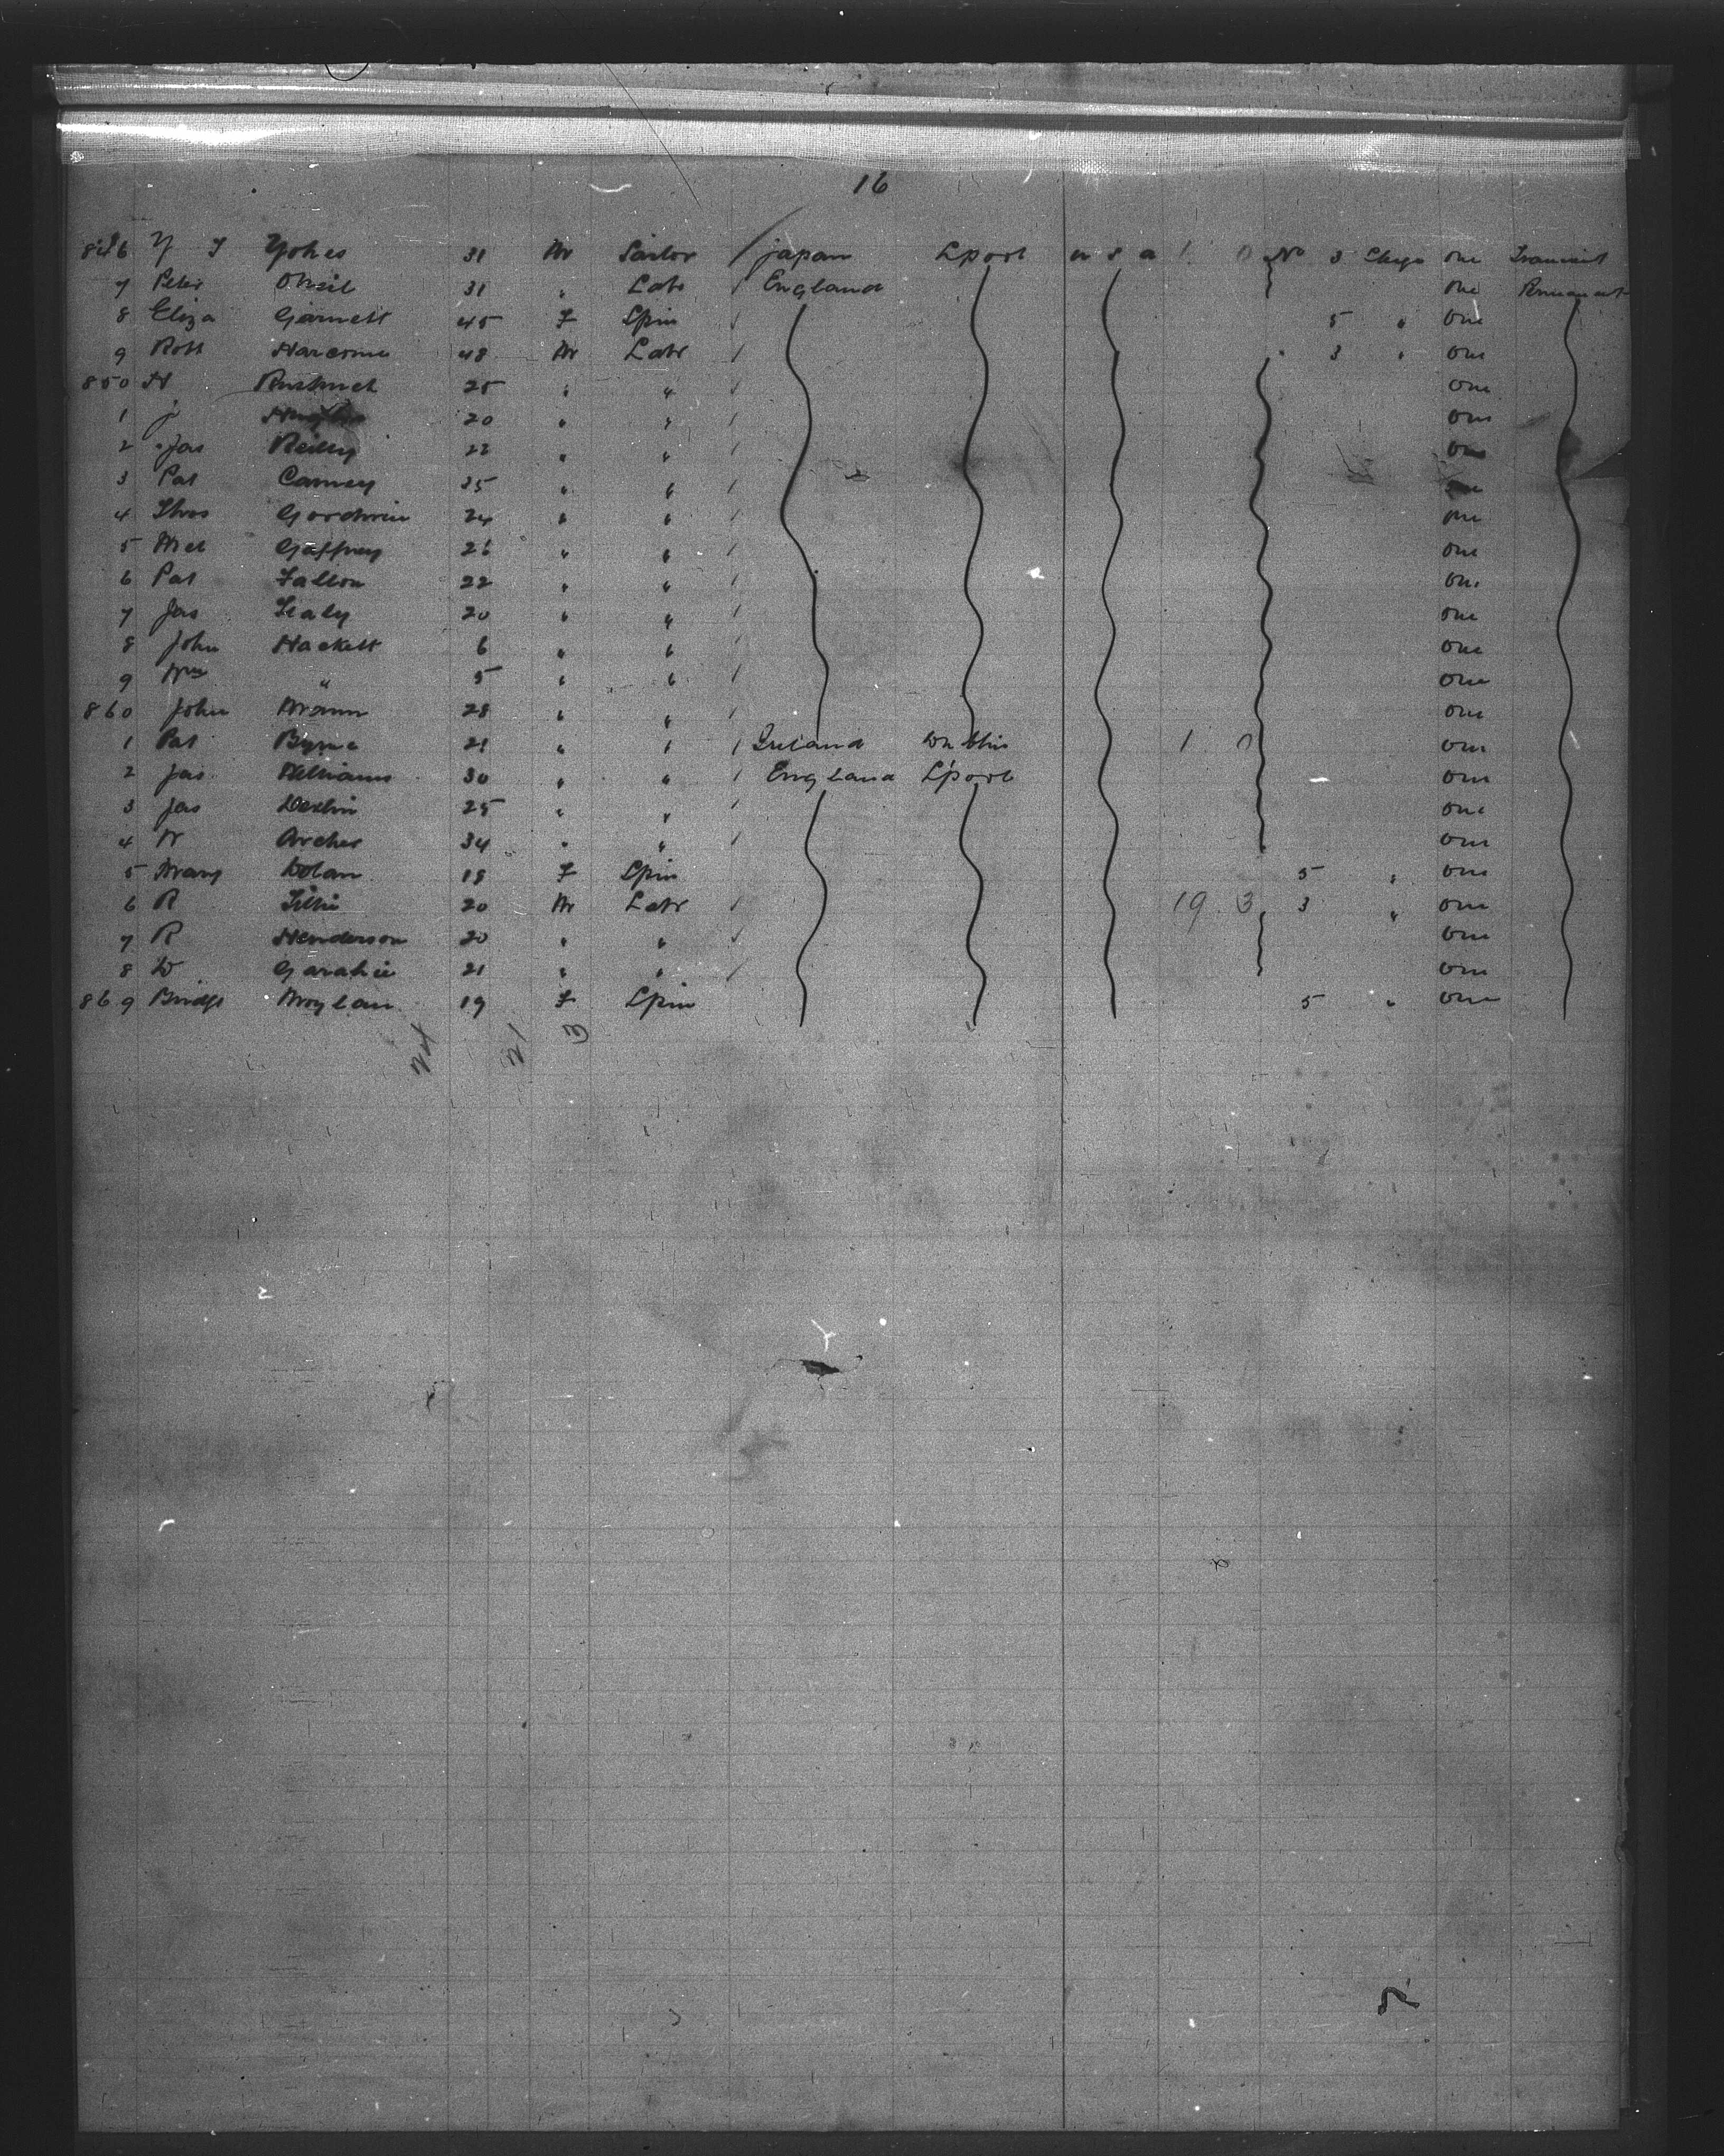 16
846 Y Yokes 31 M Sailor / Japan Lpool U S A 1 0 No 3 Stege one Transient
7 Peter Oneil 31 " Labr / England one Permanent
8 Eliza Garnett 45 F Spin / 5 " one
9 Robt Harcome 48 M Labr / 3 " one
850 H 25 " " / one
1 J 20 " " / one
2 Jas Reilly 22 " " / one
3 Pat Carney 25 " " / one
4 Thos Goodwin 24 " " / one
5 Mcl Gaffney 26 " " / one
6 Pat Fallon 22 " " / one
7 Jas Healy 20 " " / one
8 John Hackett 6 " " / one
9 Wm " 5 " " / one
860 John Mann 28 " " / one
1 Pat Byrne 21 " " / Ireland Dublin 1 0 one
2 Jas Williams 30 " " / England L'pool one
3 Jas Devlin 25 " " / one
4 W Archer 34 " " / one
5 Mary Dolan 18 F Spin 5 " one
6 R 20 M Labr / 19 3 3 " one
7 R Henderson 20 " " / one
8 D 21 " " / one
869 Bridgt Moylan 19 F Spin 5 " one
24 21 3